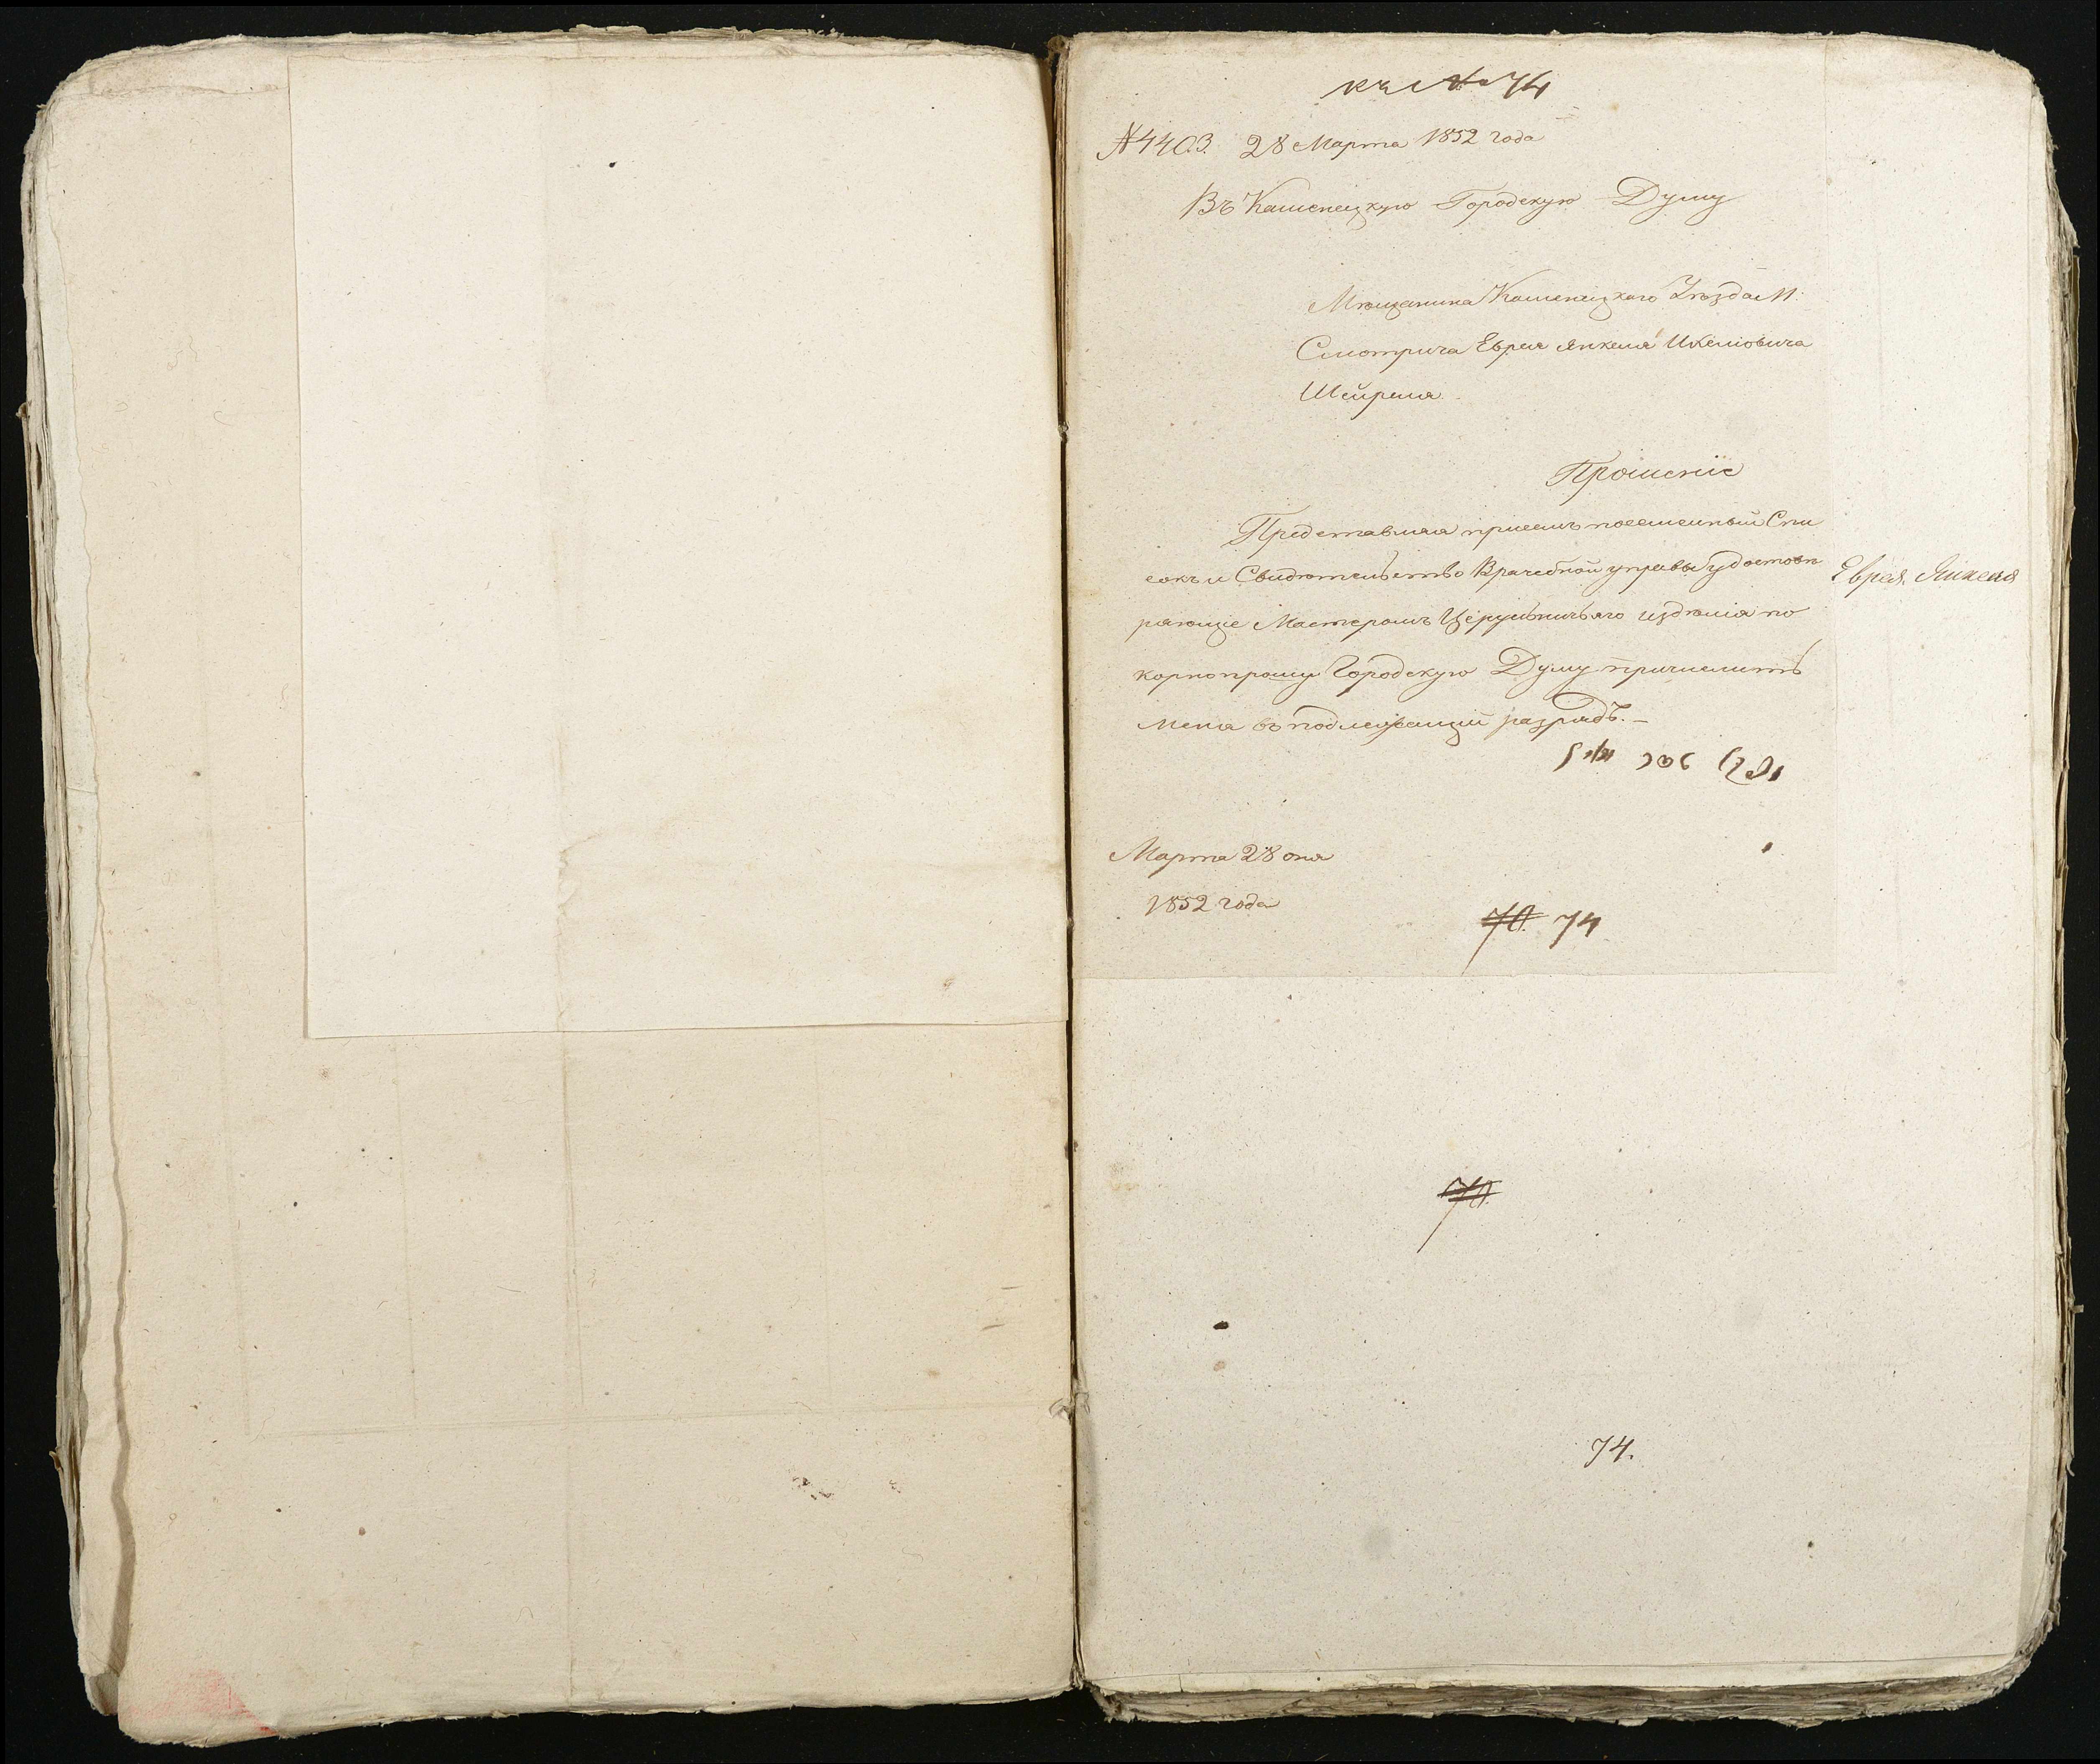 къ № 74
№ 4403. 28 Марта 1852 года
Въ Каменецкую Городскую Думу
Мѣщанина Каменецкаго Уѣзда М.
Смотрича Еврея Янкеля Икелiовича
Шейреля
Прошенiе
Представляя присемъ посемейный Спи
сокъ и Свидѣтельство Врачебной управы удостовѣ
ряющiе Мастеромъ Церульничьяго издѣлiя по
корно прошу Городскую Думу причислить
меня въ подлежащiй разрядъ. –
Марта 28 дня
1852 года
70 74
Еврея Янкеля
70
74.